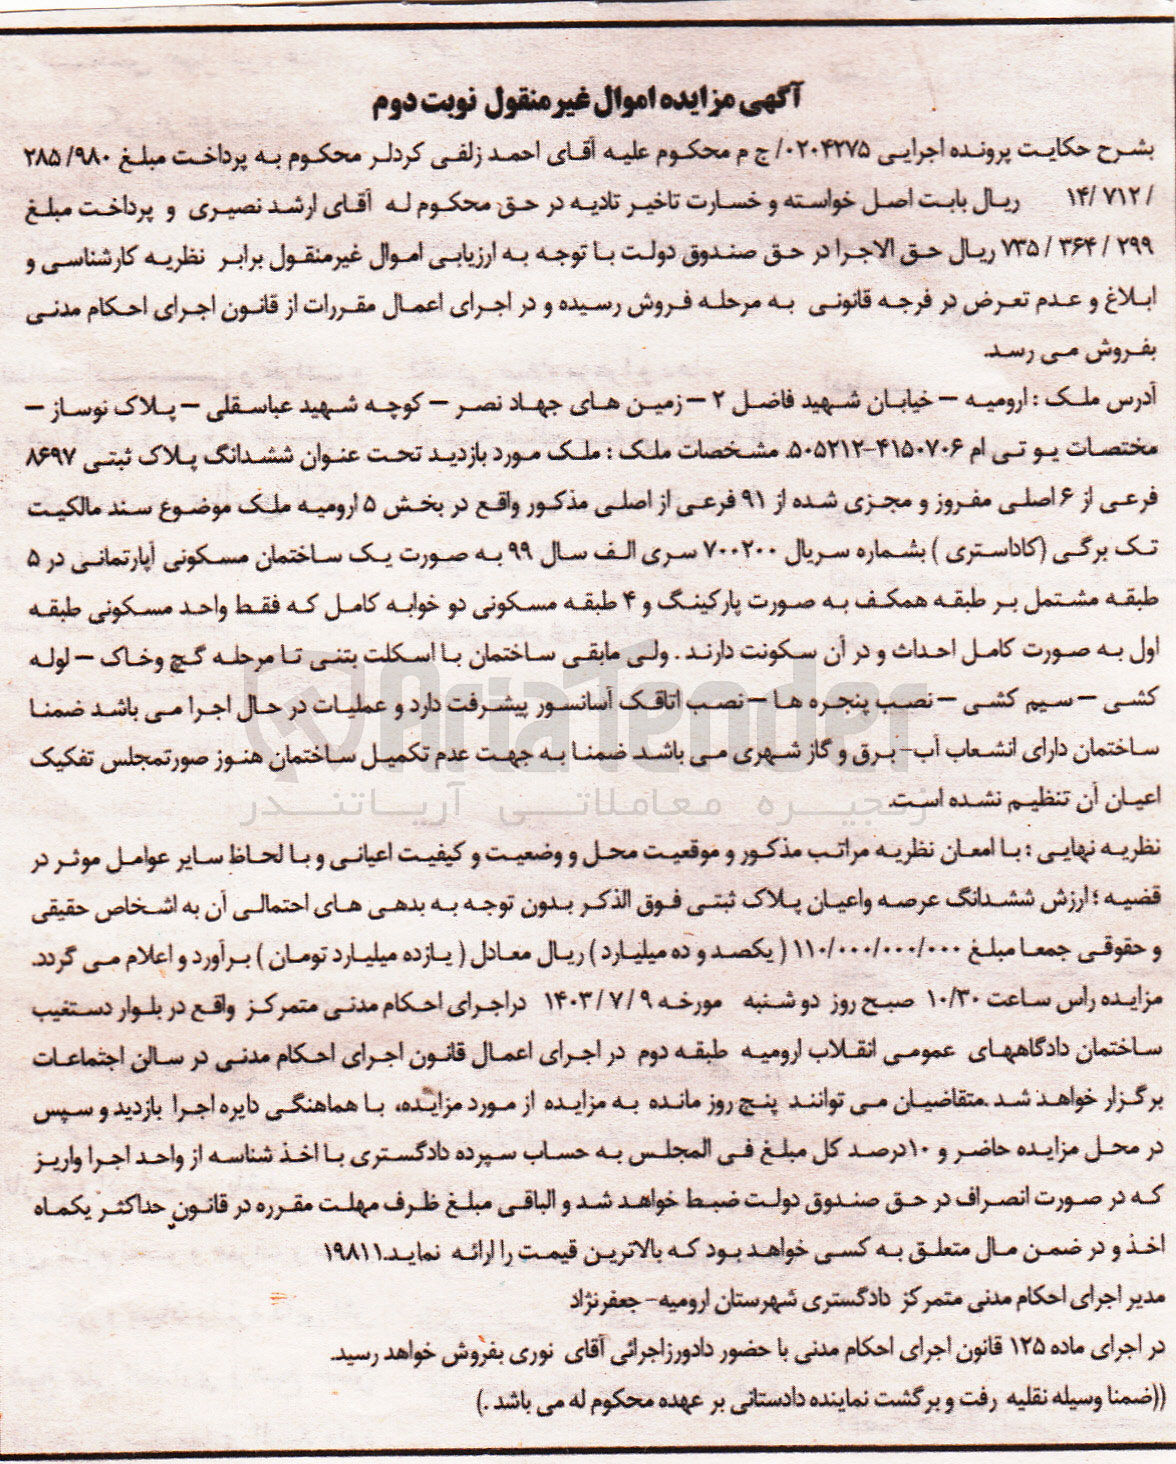 آگهی مزایده اموال غیر منقول نوبت دوم
بشرح حکایت پرونده اجرایی ۰۲۰۴۲۷۵/ ج م محکوم علیه آقای احمد زلفی کردلر محکوم به پرداخت مبلغ ۹۸۰/ ۲۸۵
/ ۷۱۲ /۱۴ ریال بابت اصل خواسته و خسارت تاخیر تادیه در حق محکوم له آقای ارشد نصیری و پرداخت مبلغ
۲۹۹ / ۳۶۴ / ۷۳۵ ریال حق الاجرا در حق صندوق دولت با توجه به ارزیابی اموال غیرمنقول برابر نظریه کارشناسی و
ابلاغ و عدم تعرض در فرجه قانونی به مرحله فروش رسیده و در اجرای اعمال مقررات از قانون اجرای احکام مدنی
بفروش می رسد.
آدرس ملک : ارومیه – خیابان شهید فاضل ۲ – زمین های جهاد نصر – کوچه شهید عباسقلی – پلاک نوساز –
مختصات یو تی ام ۴۱۵۰۷۰۶-۵۰۵۲۱۲. مشخصات ملک : ملک مورد بازدید تحت عنوان ششدانگ پلاک ثبتی ۸۶۹۷
فرعی از ۶ اصلی مفروز و مجزی شده از ۹۱ فرعی از اصلی مذکور واقع در بخش ۵ ارومیه ملک موضوع سند مالکیت
تک برگی (کاداستری ) بشماره سریال ۷۰۰۲۰۰ سری الف سال ۹۹ به صورت یک ساختمان مسکونی آپارتمانی در ۵
طبقه مشتمل بر طبقه همکف به صورت پارکینگ و ۴ طبقه مسکونی دو خوابه کامل که فقط واحد مسکونی طبقه
اول به صورت کامل احداث و در آن سکونت دارند . ولی مابقی ساختمان با اسکلت بتنی تا مرحله گچ وخاک – لوله
کشی – سیم کشی – نصب پنجره ها – نصب اتاقک آسانسور پیشرفت دارد و عملیات در حال اجرا می باشد ضمنا
ساختمان دارای انشعاب آب- برق و گاز شهری می باشد. ضمنا به جهت عدم تکمیل ساختمان هنوز صورتمجلس تفکیک
اعیان آن تنظیم نشده است.
نظریه نهایی : با امعان نظریه مراتب مذکور و موقعیت محل و وضعیت و کیفیت اعیانی و با لحاظ سایر عوامل موثر در
قضیه ؛ ارزش ششدانگ عرصه واعیان پلاک ثبتی فوق الذکر بدون توجه به بدهی های احتمالی آن به اشخاص حقیقی
و حقوقی جمعا مبلغ ۱۱۰/۰۰۰/۰۰۰/۰۰۰ ( یکصد و ده میلیارد ) ریال معادل ( یازده میلیارد تومان ) برآورد و اعلام می گردد.
مزایده راس ساعت ۱۰/۳۰ صبح روز دو شنبه مورخه ۹ / ۷ / ۱۴۰۳ دراجرای احکام مدنی متمرکز واقع در بلوار دستغیب
ساختمان دادگاههای عمومی انقلاب ارومیه طبقه دوم در اجرای اعمال قانون اجرای احکام مدنی در سالن اجتماعات
برگزار خواهد شد .متقاضیان می توانند پنج روز مانده به مزایده از مورد مزایده، با هماهنگی دایره اجرا بازدید و سپس
در محل مزایده حاضر و ۱۰درصد کل مبلغ فی المجلس به حساب سپرده دادگستری با اخذ شناسه از واحد اجرا واریز
که در صورت انصراف در حق صندوق دولت ضبط خواهد شد و الباقی مبلغ ظرف مهلت مقرره در قانون حداکثر یکماه
اخذ و در ضمن مال متعلق به کسی خواهد بود که بالاترین قیمت را ارائه نماید.۱۹۸۱۱
مدیر اجرای احکام مدنی متمرکز دادگستری شهرستان ارومیه- جعفرنژاد
در اجرای ماده ۱۲۵ قانون اجرای احکام مدنی با حضور دادورزاجرائی آقای نوری بفروش خواهد رسید.
((ضمنا وسیله نقلیه رفت و برگشت نماینده دادستانی بر عهده محکوم له می باشد .)
AriaTender
زنجیره معاملاتی آریاتندر